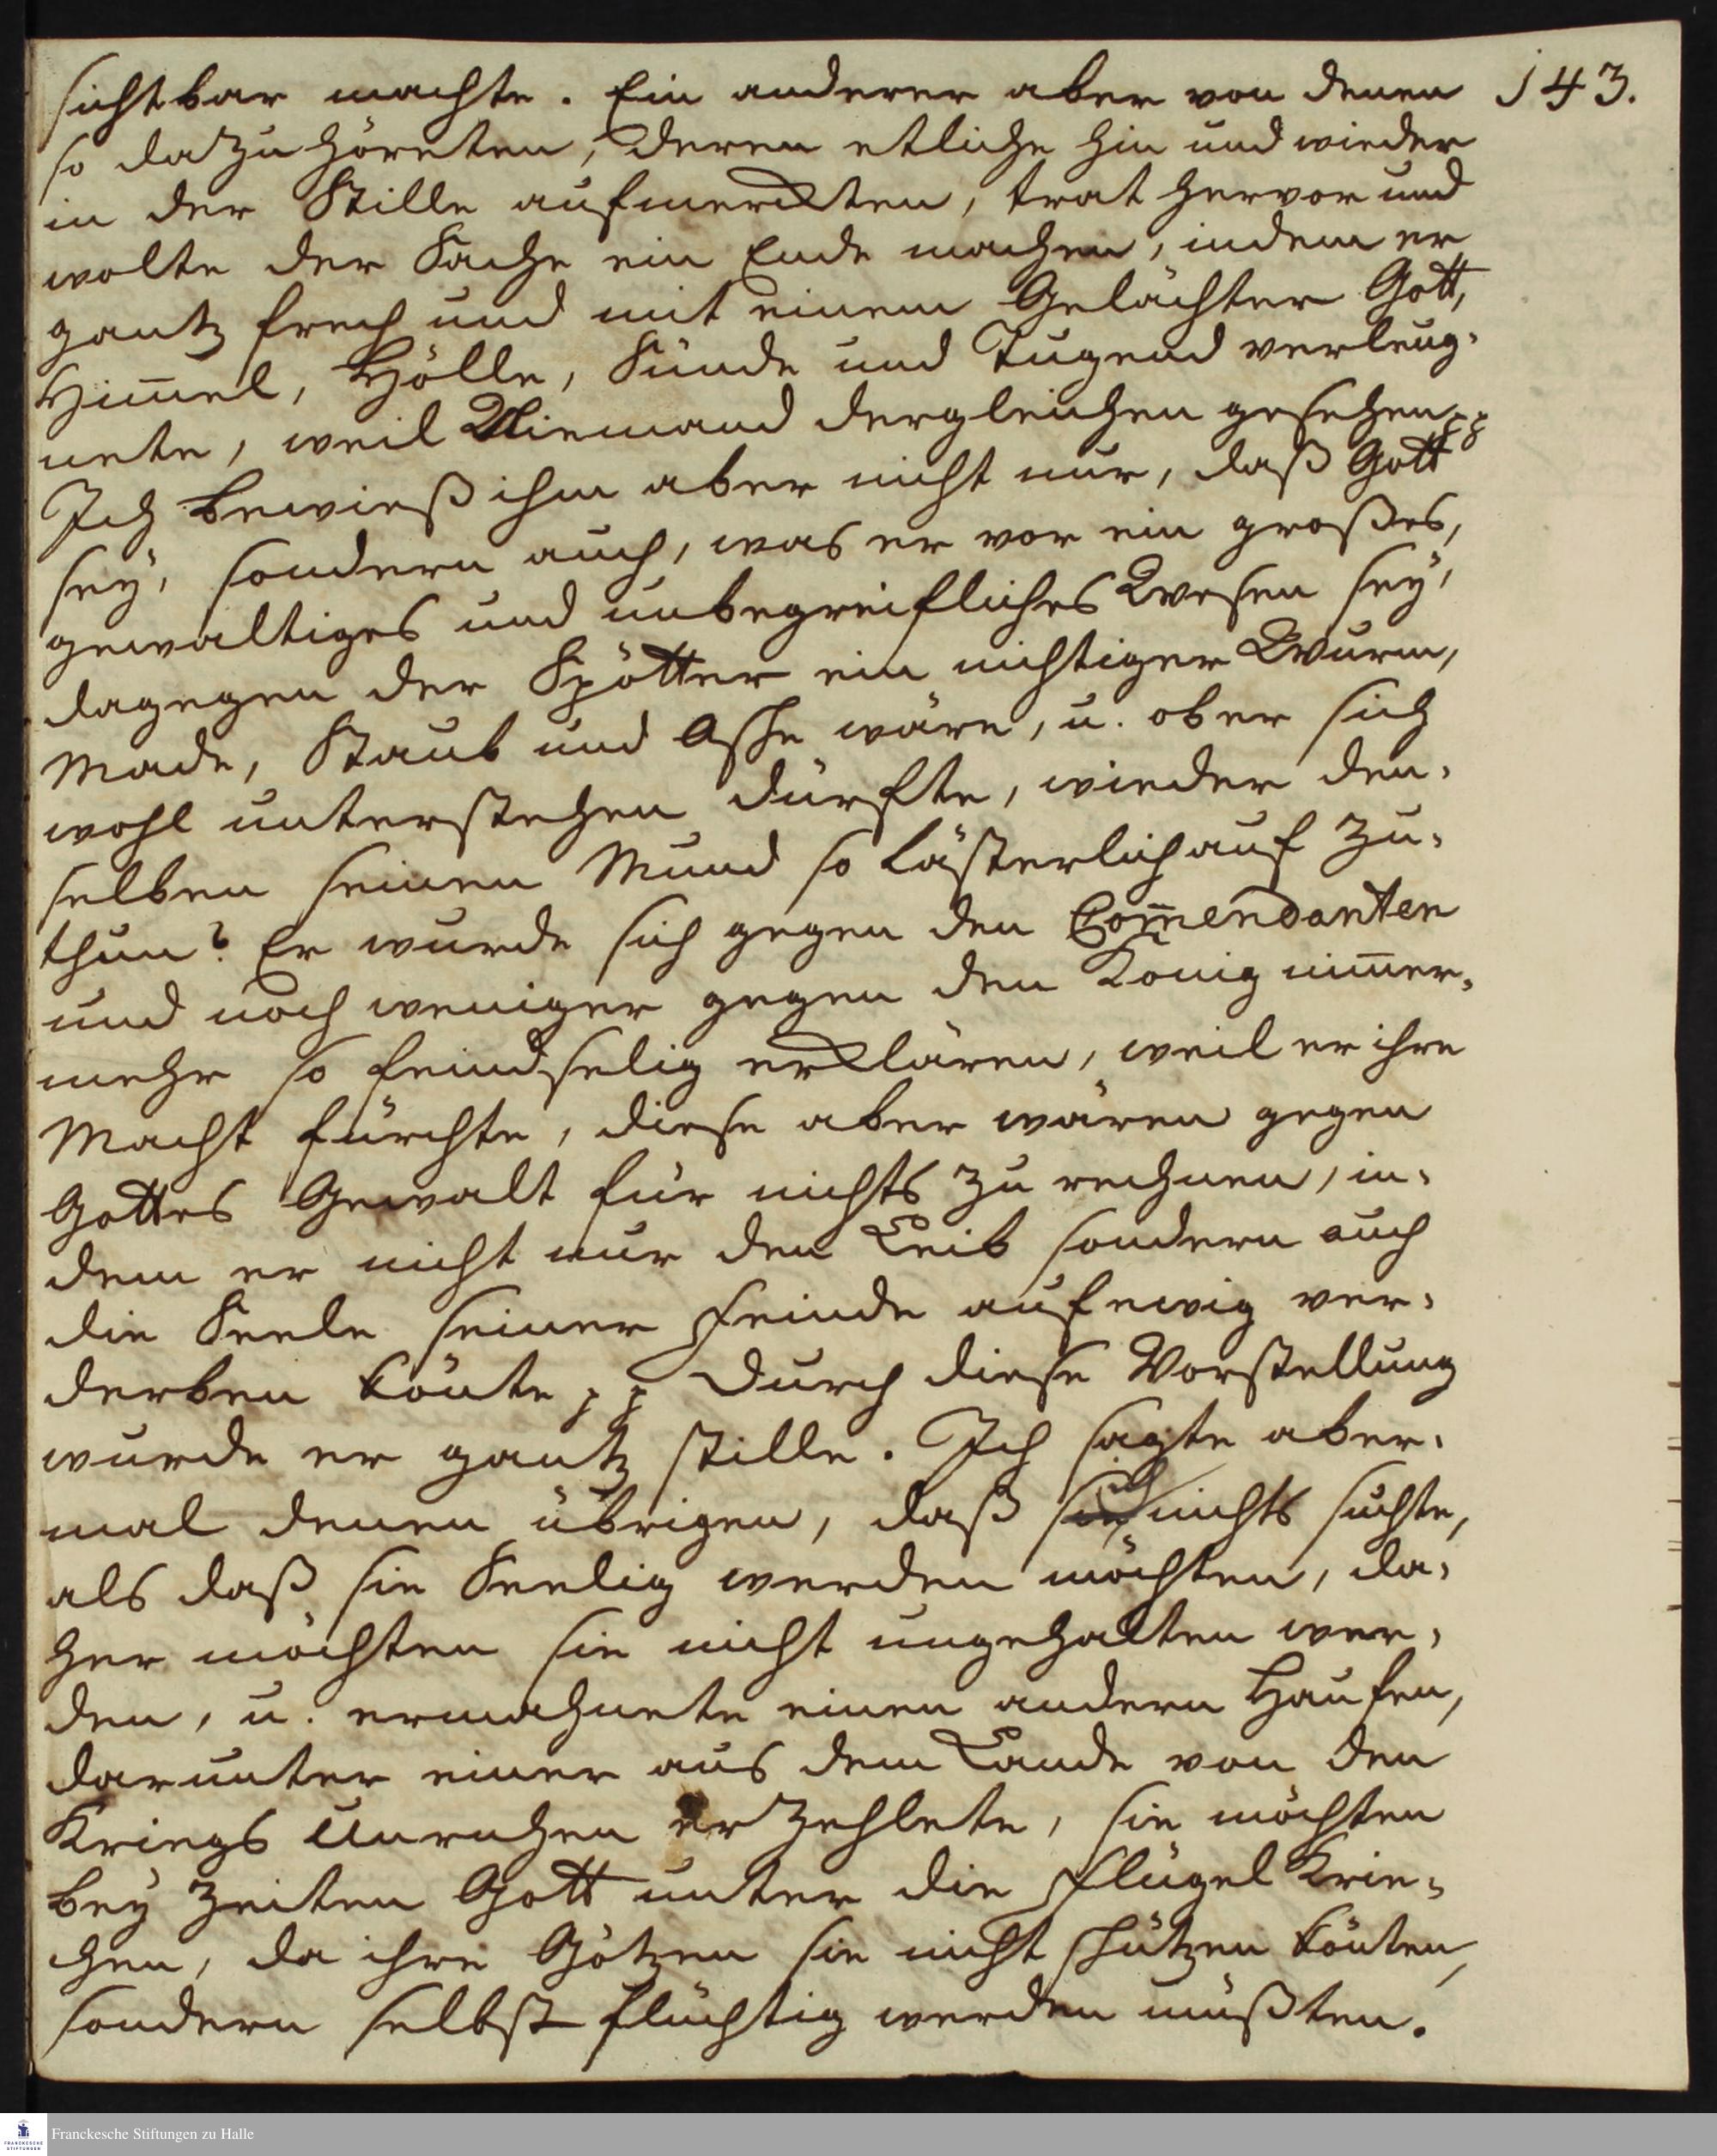 143.
sichtbar machte. Ein anderer aber von denen
so dazu höreten, deren etliche hin und wieder
in der Stille aufmerckten, trat hervor und
wolte der Sache ein Ende machen, indem er
gantz frech und mit einem Gelächter Gott,
Him̅el, Hölle, Sünde und Tugend verleug-
nete, weil Niemand dergleichen gesehen pp
Ich bewieß ihm aber nicht nur, daß Gott
sey, sondern auch, was er vor ein großes,
gewaltiges und unbegreifliches Wesen sey,
dagegen der Spötter ein nichtiger Wurm,
Made, Staub und Asche wäre, u. ob er sich
wohl unterstehen dürfte, wieder den-
selben seinen Mund so lästerlich auf zu-
thun? Er wurde sich gegen den Com̅endanten
und noch weniger gegen den König nim̅er-
mehr so feindselig erklären, weil er ihre
Macht fürchte, diese aber wären gegen
Gottes Gewalt für nichts zu rechnen, in-
dem er nicht nur den Leib sondern auch
die Seele seiner Feinde auf ewig ver-
derben könte pp Durch diese Vorstellung
wurde er gantz stille. Ich sagte aber-
mal denen übrigen, daß ich nichts suchte,
als daß sie Seelig werden möchten, da-
her möchten sie nicht ungehalten wer-
den, u. ermahnete einen andern Haufen,
darunter einer aus dem Lande von den
Kriegs Unruhen erzehlete, sie möchten
bey Zeiten Gott unter die Flügel krie-
chen, da ihre Götzen sie nicht schützen könten,
sondern selbst flüchtig werden müßten.
Franckesche Stiftungen zu Halle
FRANCKESCHE
STIFTUNGEN